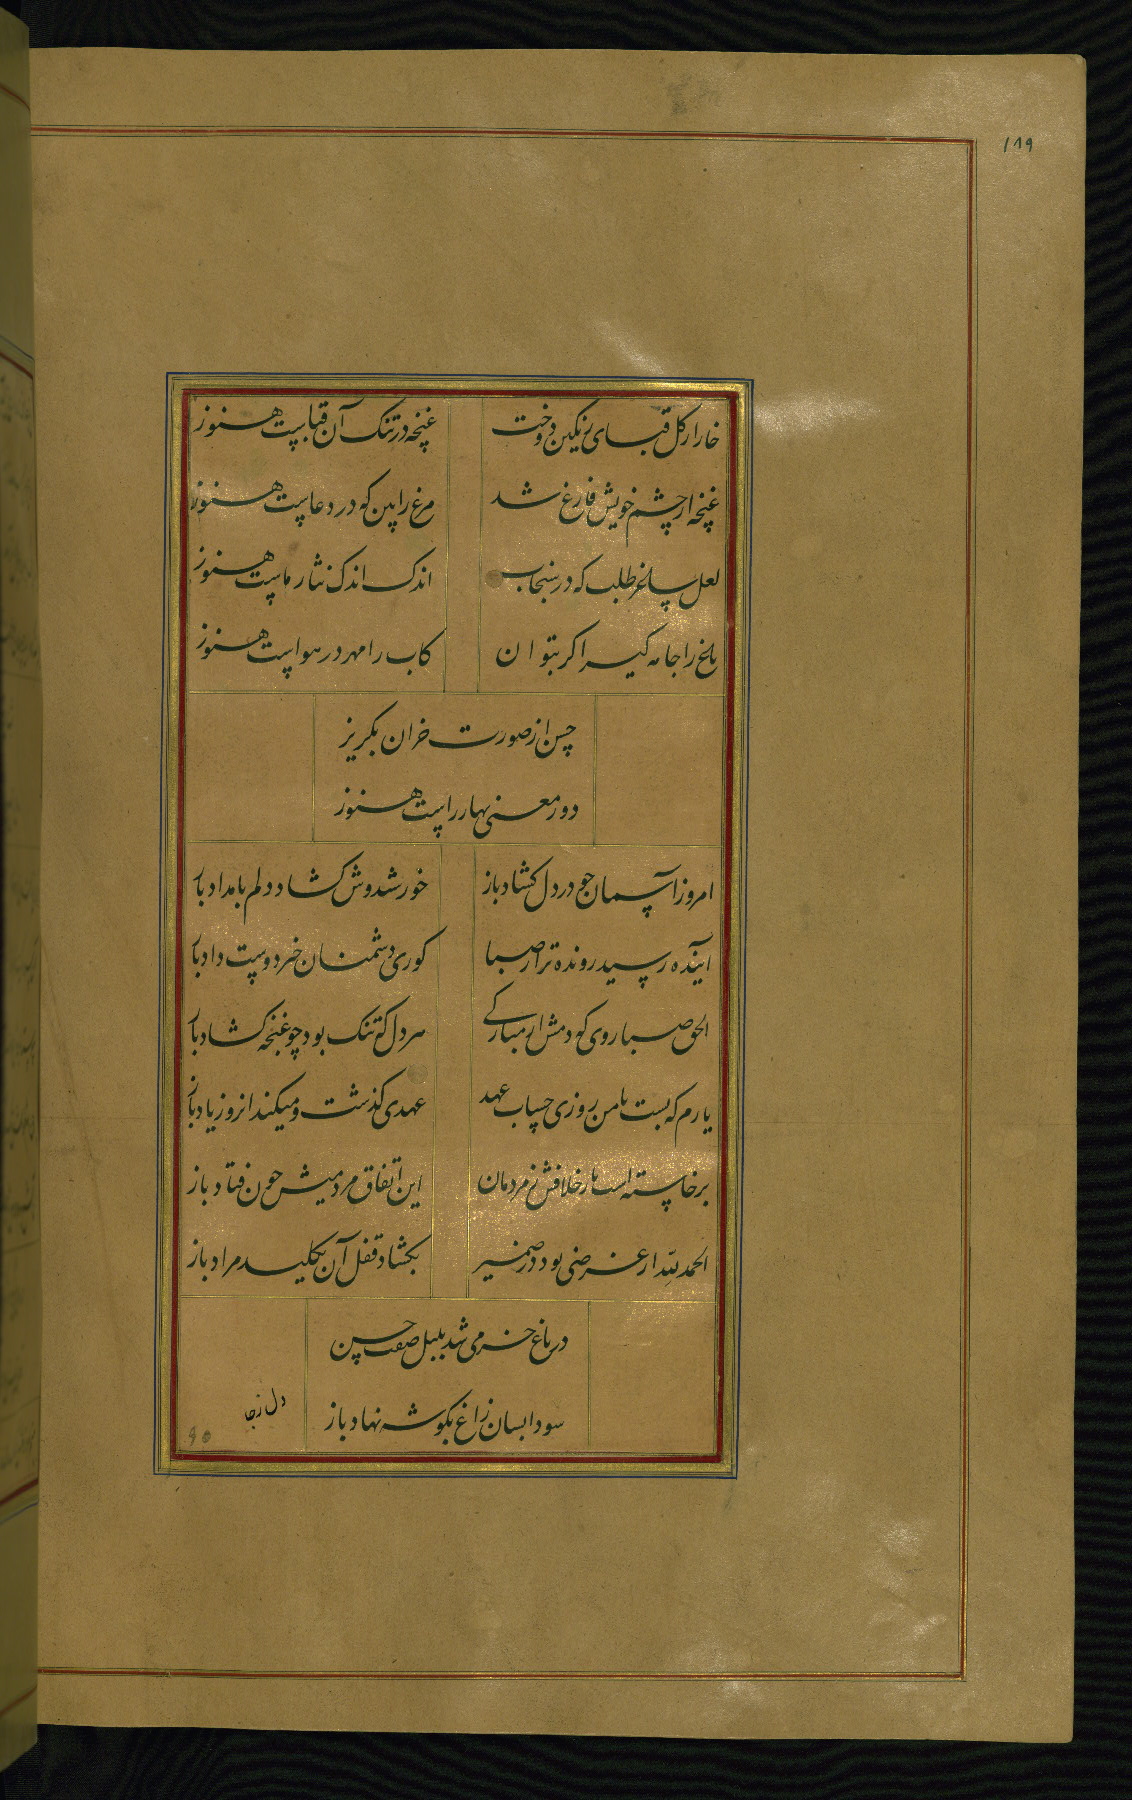 ۱۸۹
خار از گل قبای رنگین دوخت
غنچه در تنگ آن قباست هنوز
غنچه از چشم خویش فارغ شد
مرغ را بین که در دعاست هنوز
لعل ساغر طلب که در سنجاب
اندک اندک نثار ماست هنوز
بلخ را جامه گیر اگر بتوان
کاب را مهر در هواست هنوز
حسن از صورت خزان بگریز
دور معنی بهار راست هنوز
امروز آسمان چو در دل گشاد باز
خورشیدوش گشاد دلم بامداد باز
آینده رسید رونده تر از صبا
کوری دشمنان خبر دوست داد باز
الحق صبا روی که دمش از مبارکی
هر دل که تنگ بود چو غنچه گشاد باز
یارم که بست با من روزی حساب عهد
عهدی گذشت و میکند امروز یاد باز
برخاسته است باز خلافش ز مردمان
این اتفاق مردمیش چون فتاد باز
الحمد لله ار غرضی بود در ضمیر
بگشاد قفل آن بکلید مراد باز
در باغ خرمی شد بلبل صفت حسن
سودا بسان زاغ بگوشه نهاد باز
دل ز جا